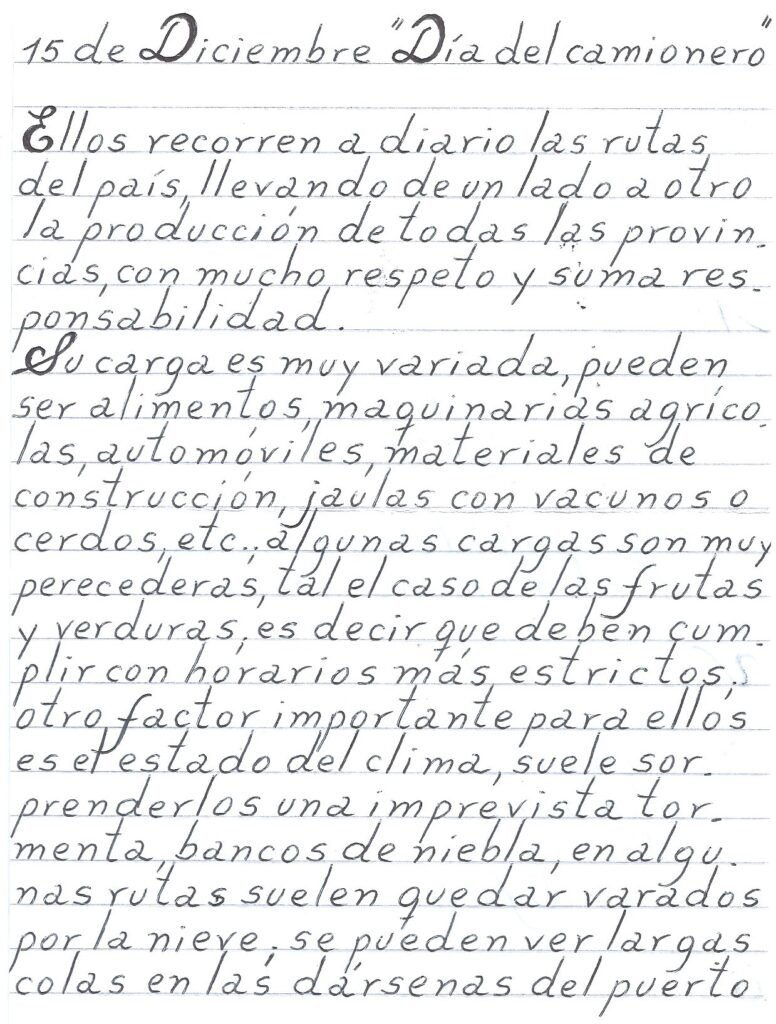 15 de Diciembre "Día del camionero"
Ellos recorren a diario las rutas
del país, llevando de un lado a otro
la producción de todas las provin-
cias, con mucho respeto y suma res-
ponsabilidad.
Su carga es muy variada, pueden
ser alimentos, maquinarias agríco-
las, automóviles, materiales de
construcción, jaulas con vacunos o
cerdos, etc.; algunas cargas son muy
perecederas, tal el caso de las frutas
y verduras, es decir que deben cum-
plir con horarios más estrictos;
otro factor importante para ellos
es el estado del clima, suele sor-
prenderlos una imprevista tor-
menta, bancos de niebla, en algu-
nas rutas suelen quedar varados
por la nieve; se pueden ver largas
colas en las dársenas del puerto